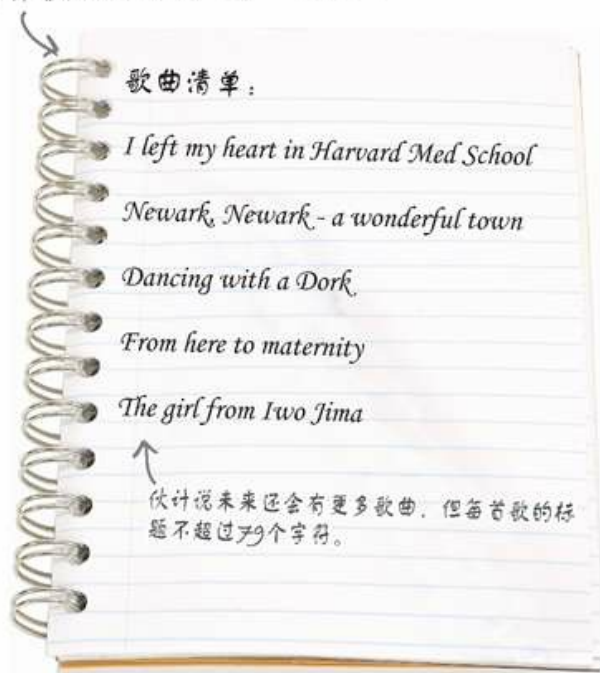 歌曲清单：
I left my heart in Harvard Med School
Newark, Newark - a wonderful town
Dancing with a Dork
From here to maternity
The girl from Iwo Jima
伙计说未来还会有更多歌曲，但每首歌的标
题不超过79个字符。